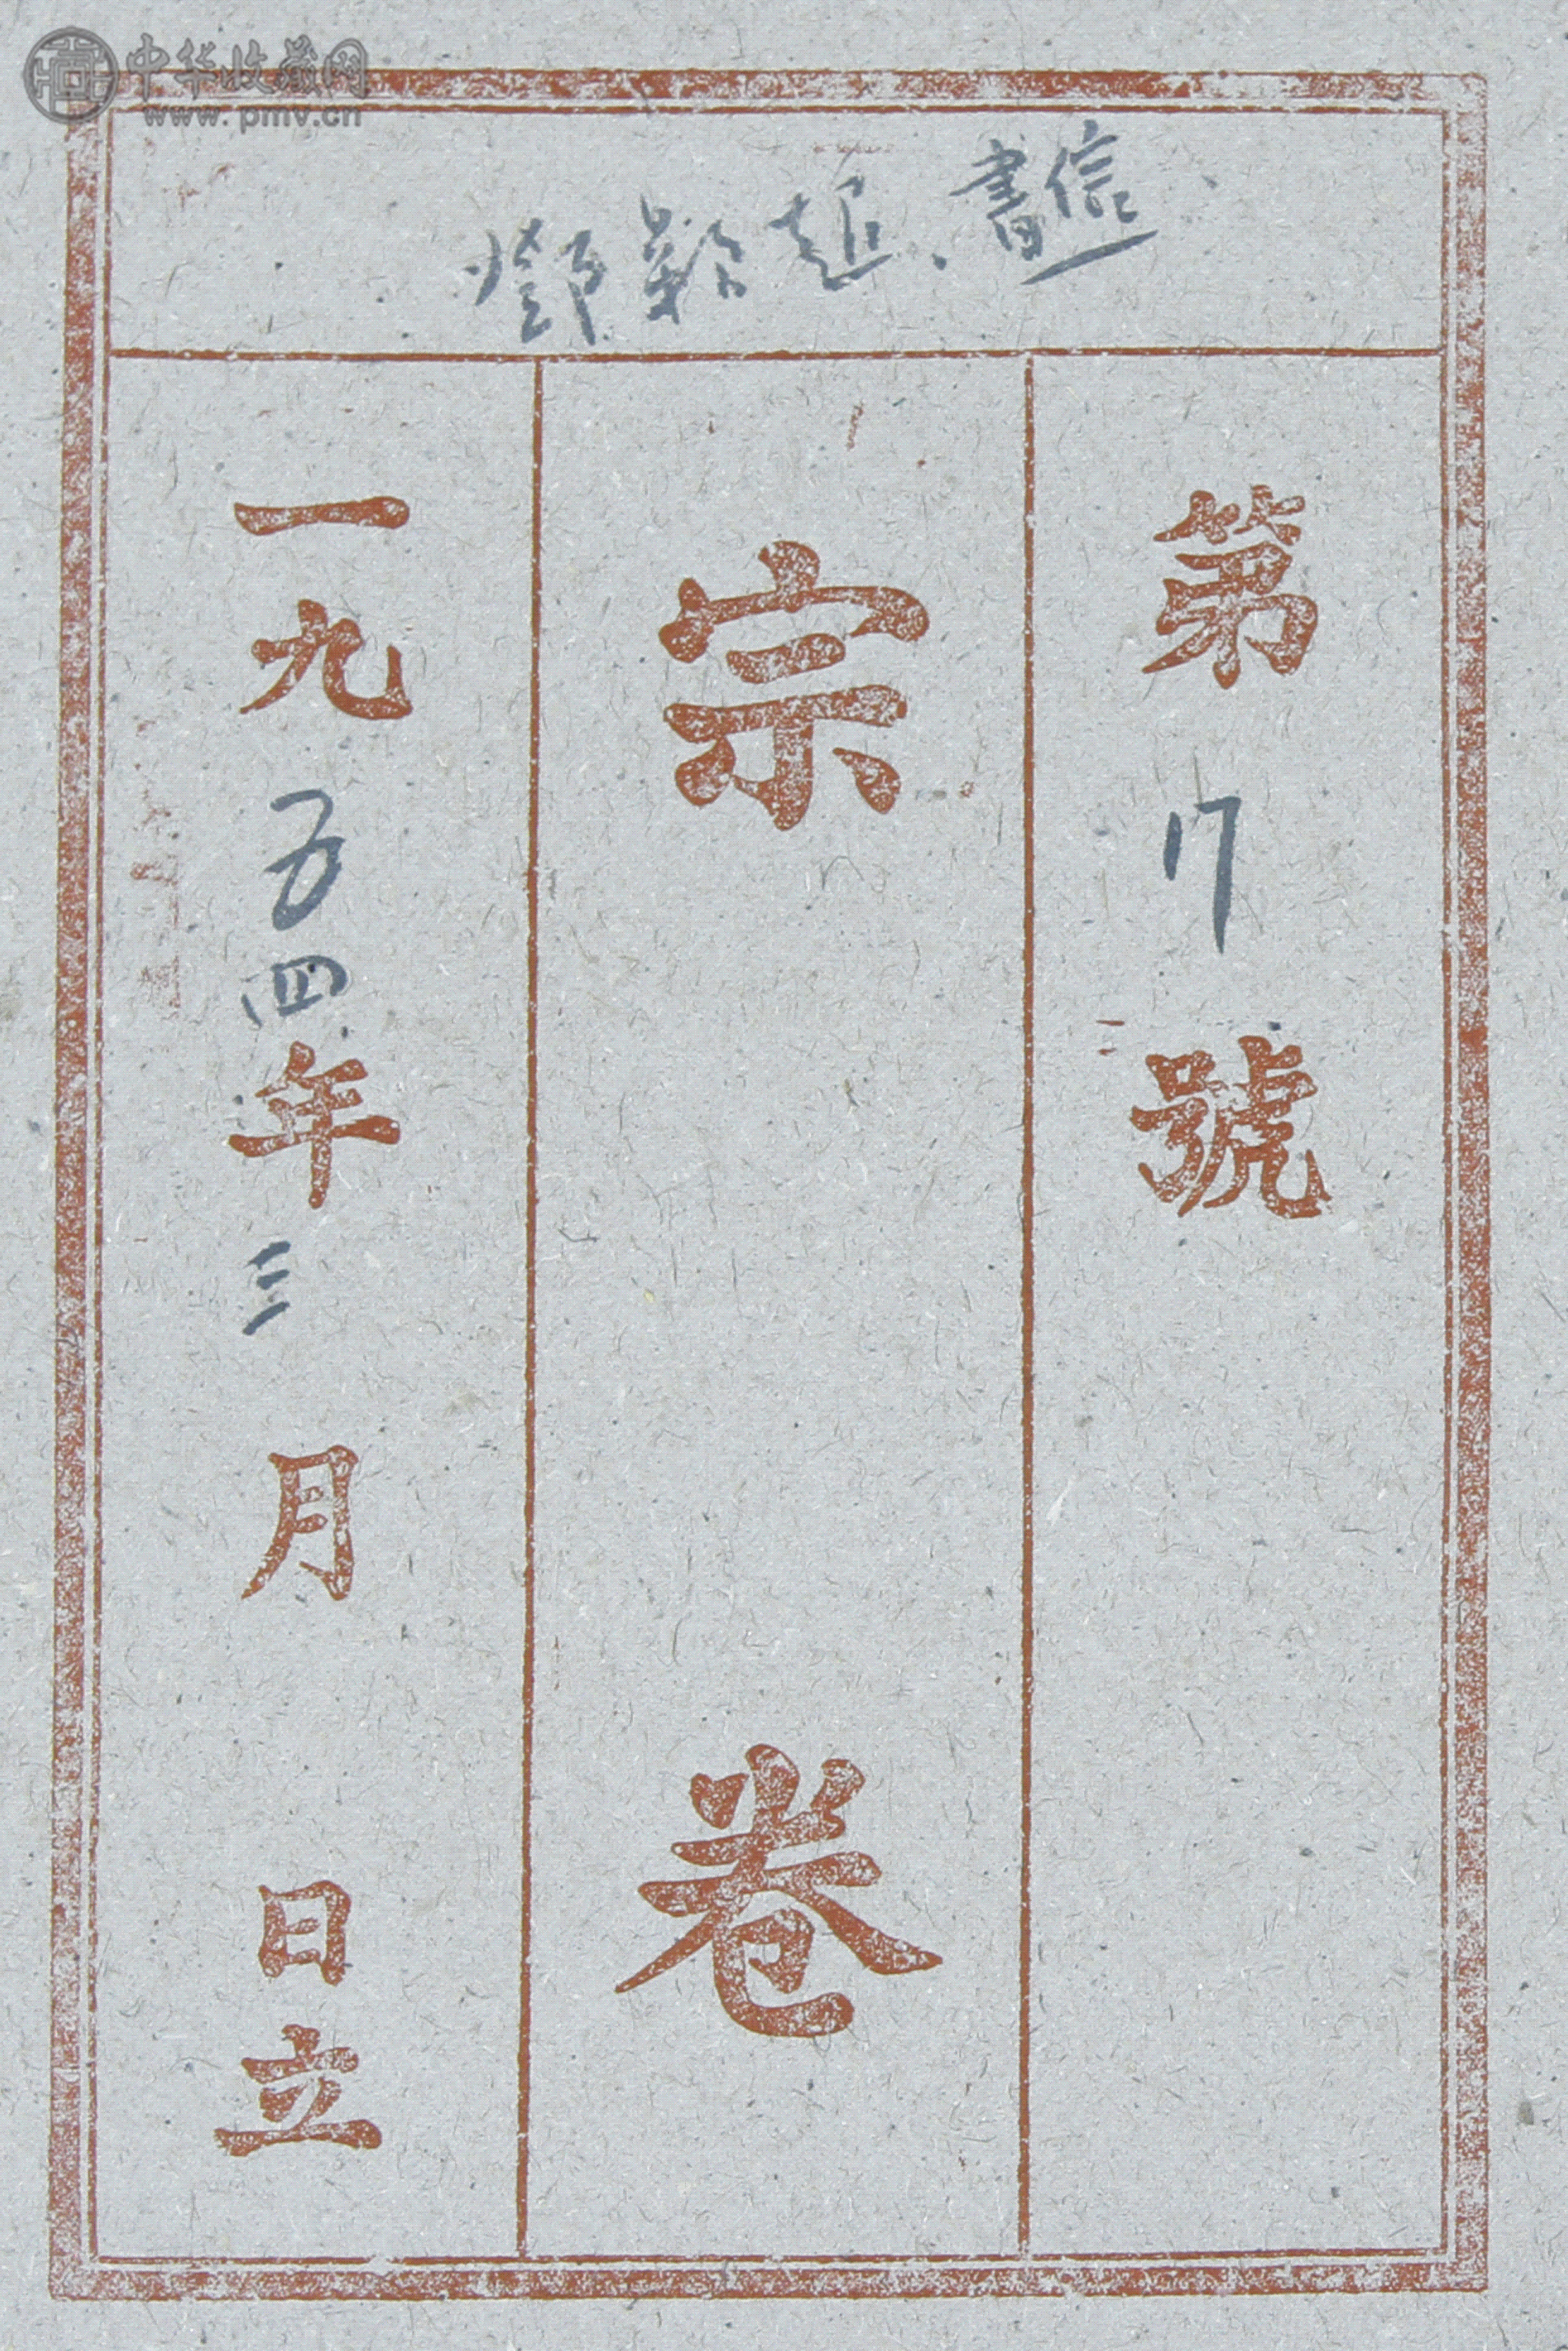 中华收藏网
www.pmv.cn
鄧穎超、書信
第17號
宗卷
一九五四年三月 日立